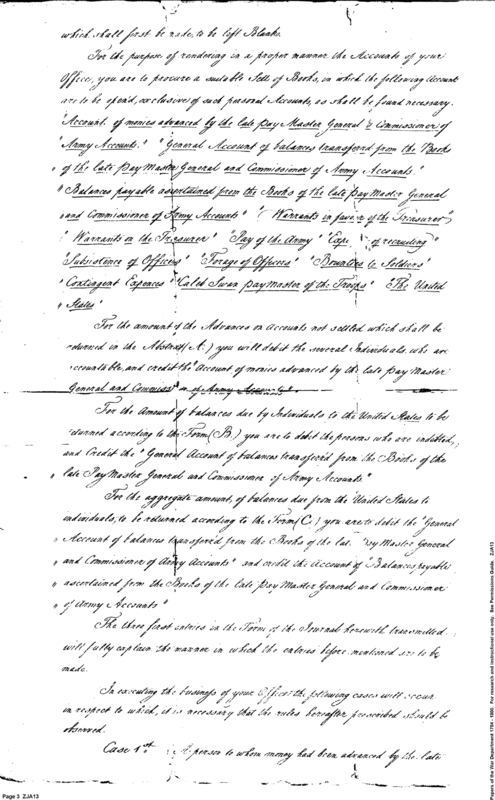 which shall first be made, to be left Blank.
For the purpose of rendering in a proper manner the Accounts of your
Office, you are to procure a suitable Sett of Books, in which the following Account
are to be open'd, exclusive of such personal Accounts, as shall be found necessary.
"Account of monies advanced by the late Pay Master General & Commissioner of
"Army Accounts." "General Account of balances transferred from the Books
of the late Pay Master General and Commissioner of Army Accounts."
"Balances payable ascertained from the Books of the late Pay Master General
"and Commissioner of Army Accounts" "Warrants in favor of the Treasurer"
"Warrants on the Treasurer" "Pay of the Army" "Expe of recruiting"
"Subsistence of Officers" "Forage of Officers" "Bounties to Soldiers"
"Contingent Expences" "Caleb Swan Pay Master of the Troops" "The United
"States"
For the amount of the Advances on Accounts not settled which shall be
returned in the Abstract (A.) you will debit the several Individuals, who are
accountable, and credit the "Account of monies advanced by the late Pay Master
General and Commiss of Army Accounts"
For the Amount of balances due by Individuals to the United States to be
returned according to the Form (B.) you are to debit the persons who are indebted,
and Credit the "General Account of balances transferred from the Books of the
" late Pay Master General and Commissioner of Army Accounts"
For the aggregate amount, of balances due from the United States to
individuals, to be returned according to the Form (C.) you are to debit the "General
" Account of balances transferred from the Books of the lat Pay Master General
" and Commissioner of Army Accounts" and credit the Account of "Balances payable
" ascertained from the Books of the late Pay Master General and Commissioner
" of Army Accounts"
The three first entries in the Form of the Journal herewith transmitted
will fully explain the manner in which the entries before mentioned are to be
made.
In executing the business of your Office the following cases will occur
in respect to which, it is necessary that the rules hereafter prescribed should be
observed.
Case 1st. A person to whom money had been advanced by the late
Page 3 ZJA13
Papers of the War Department 1784 - 1800. For research and instructional use only. See Permissions Guide. ZJA13